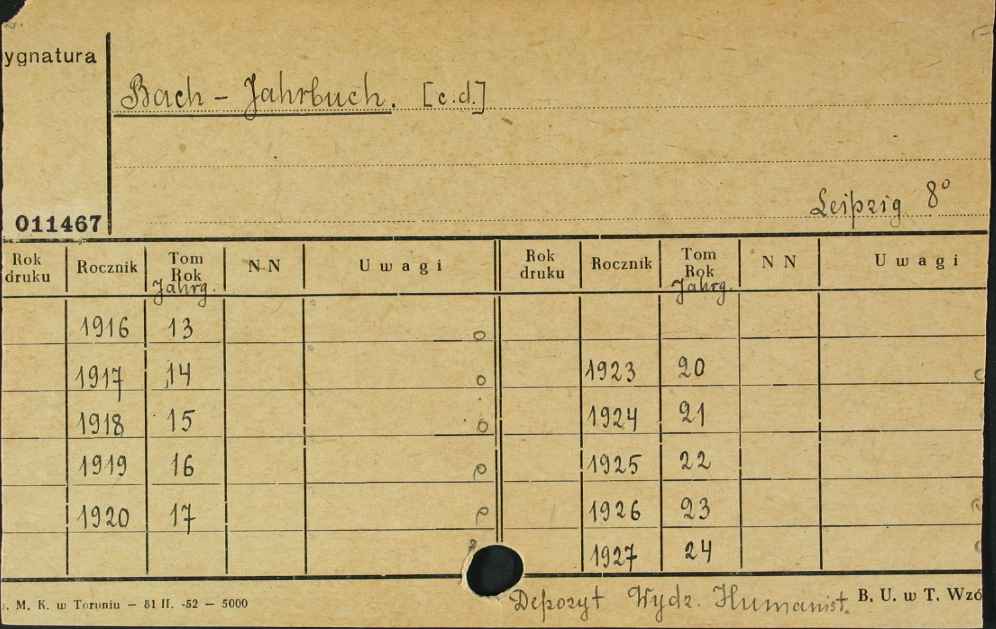 ygnatura
Bach - Jahrbuch. [c.d.]
Leipzig 8°
011467
Rok druku Rocznik Tom Rok Jahrg. N N Uwagi Rok druku Rocznik Tom Rok Jahrg. N N Uwagi
1916 13 o
1917 14 o 1923 20
1918 15 o 1924 21
1919 16 1925 22
1920 17 1926 23
1927 24
. M. K. w Toruniu — 81 II. -52 — 5000
Depozyt Wydz. Humanist. B. U. w T. Wzó